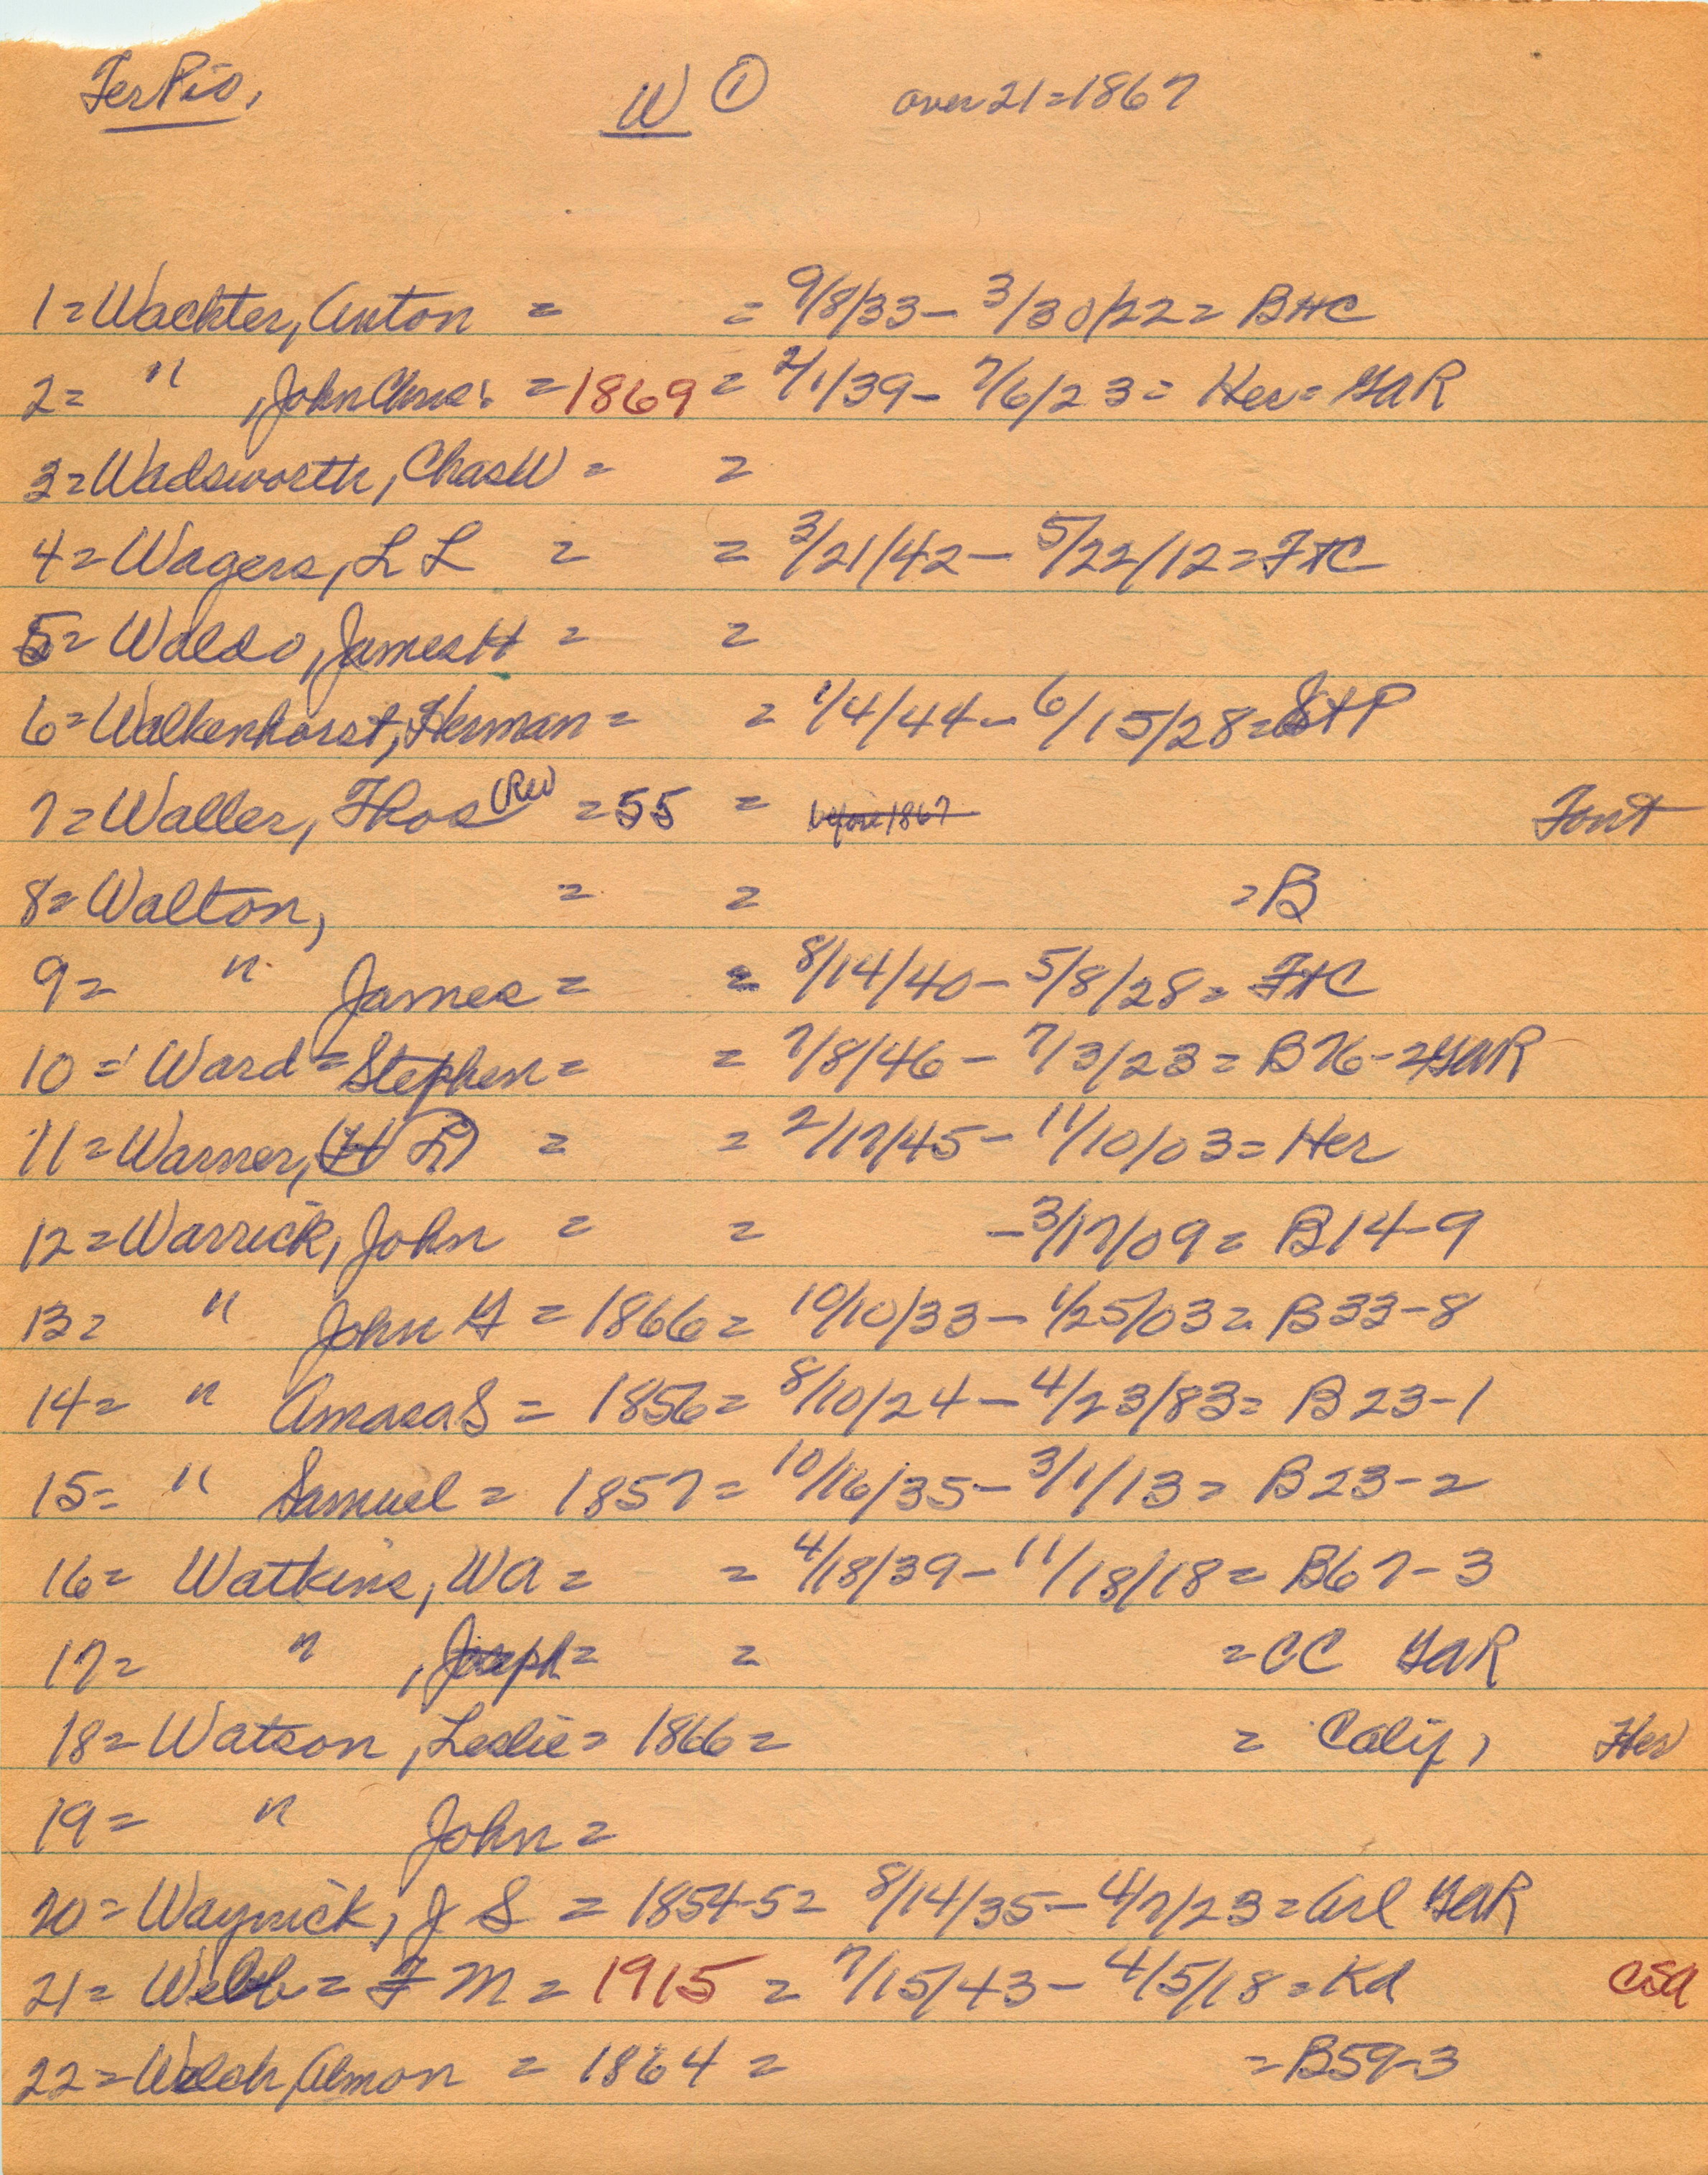 Ter Pio, W ① over 21=1867
1=Wachter, Anton = = 9/8/33- 3/30/22= BHC
2= " , John Chris: =1869= 2/1/39- 7/6/23= Her= GAR
3=Wadsworth, Chas W = =
4=Wagers, L L = = 3/21/42- 5/22/12=FHC
5= Waldo, James H = =
6=Walkenhorst, Herman= = 1/4/44- 6/15/28= StP
7=Waller, Thos (Rev) =55 = before 1867 Font
8= Walton, = = =B
9= " James = = 8/14/40- 5/8/28= FHC
10= Ward= Stephen= = 7/8/46- 7/3/23= B76-2 GAR
11=Warner, (H L) = = 2/17/45- 11/10/03= Her
12=Warrick, John = = -3/17/09= B14-9
13= " John G = 1866= 10/10/33- 1/25/03= B33-8
14= " Amasa S = 1856= 8/10/24- 4/23/83= B23-1
15= " Samuel = 1857= 10/16/35- 3/1/13= B23-2
16= Watkins, WA = = 4/18/39- 11/18/18= B67-3
17= " , Joseph= = =CC GAR
18=Watson, Leslie= 1866= = Calif, Her
19= " John=
20=Waynick, J S = 1854-5= 8/14/35- 4/7/23=Arl GAR
21= Webb= F M = 1915 = 7/15/43- 4/5/18=Kd CSA
22=Welch, Almon = 1864 = =B59-3